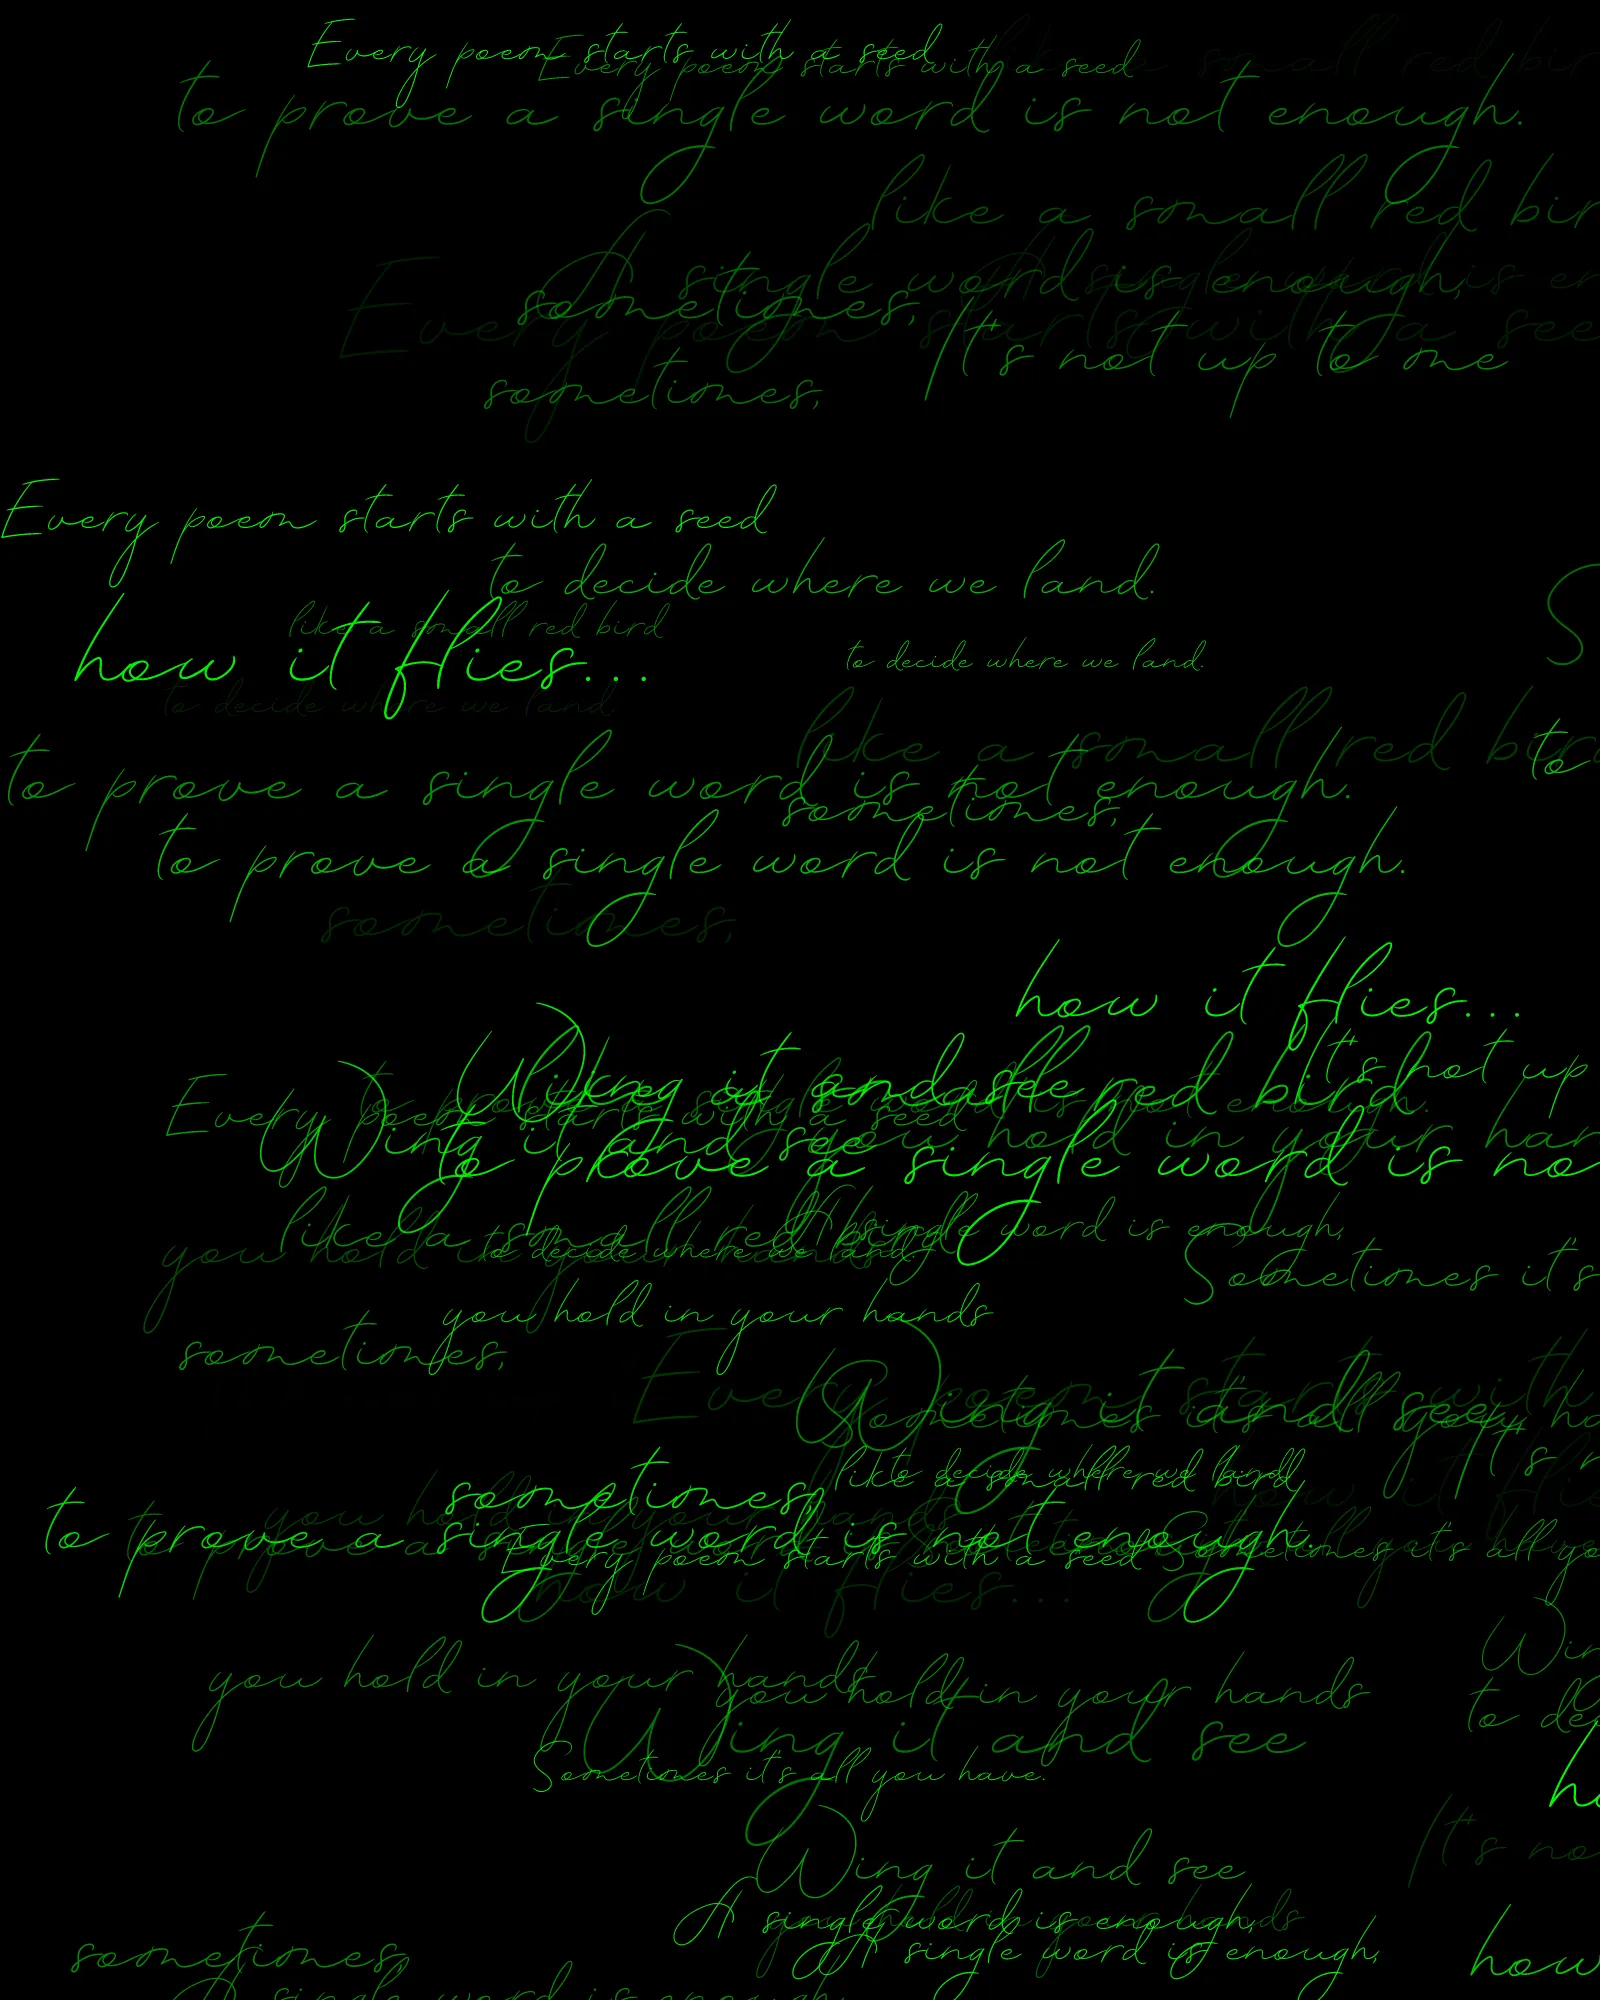 Every poem starts with a seed
Every poem starts with a seed
like a small red bir
to prove a single word is not enough.
like a small red bir
A single word is enough,
A single word is en
sometimes,
Every poem starts with a see
It's not up to me
sometimes,
Every poem starts with a seed
to decide where we land.
S
like a small red bird
how it flies...
to decide where we land.
to decide where we land.
like a small red bird
to
to prove a single word is not enough.
sometimes,
to prove a single word is not enough.
sometimes,
how it flies...
It's not up
Wing it and see
like a small red bird
to prove a single word is not enough.
Every poem starts with a seed
you hold in your han
Wing it and see
to prove a single word is no
A single word is enough,
like a small red bird
you hold in your hands
to decide where we land.
Sometimes it's
you hold in your hands
sometimes,
Every poem starts with
Wing it and see
Sometimes it's all you ha
It's n
like a small red bird
to decide where we land.
how it flie
sometimes,
you hold in your hands
to prove a single word is not enough.
to prove a single word is not enough.
Every poem starts with a seed
Sometimes it's all yo
how it flies...
Win
you hold in your hands
you hold in your hands
to de
Wing it and see
Sometimes it's all you have.
h
It's no
Wing it and see
A single word is enough,
you hold in your hands
A single word is enough,
sometimes,
how
A single word is enough,